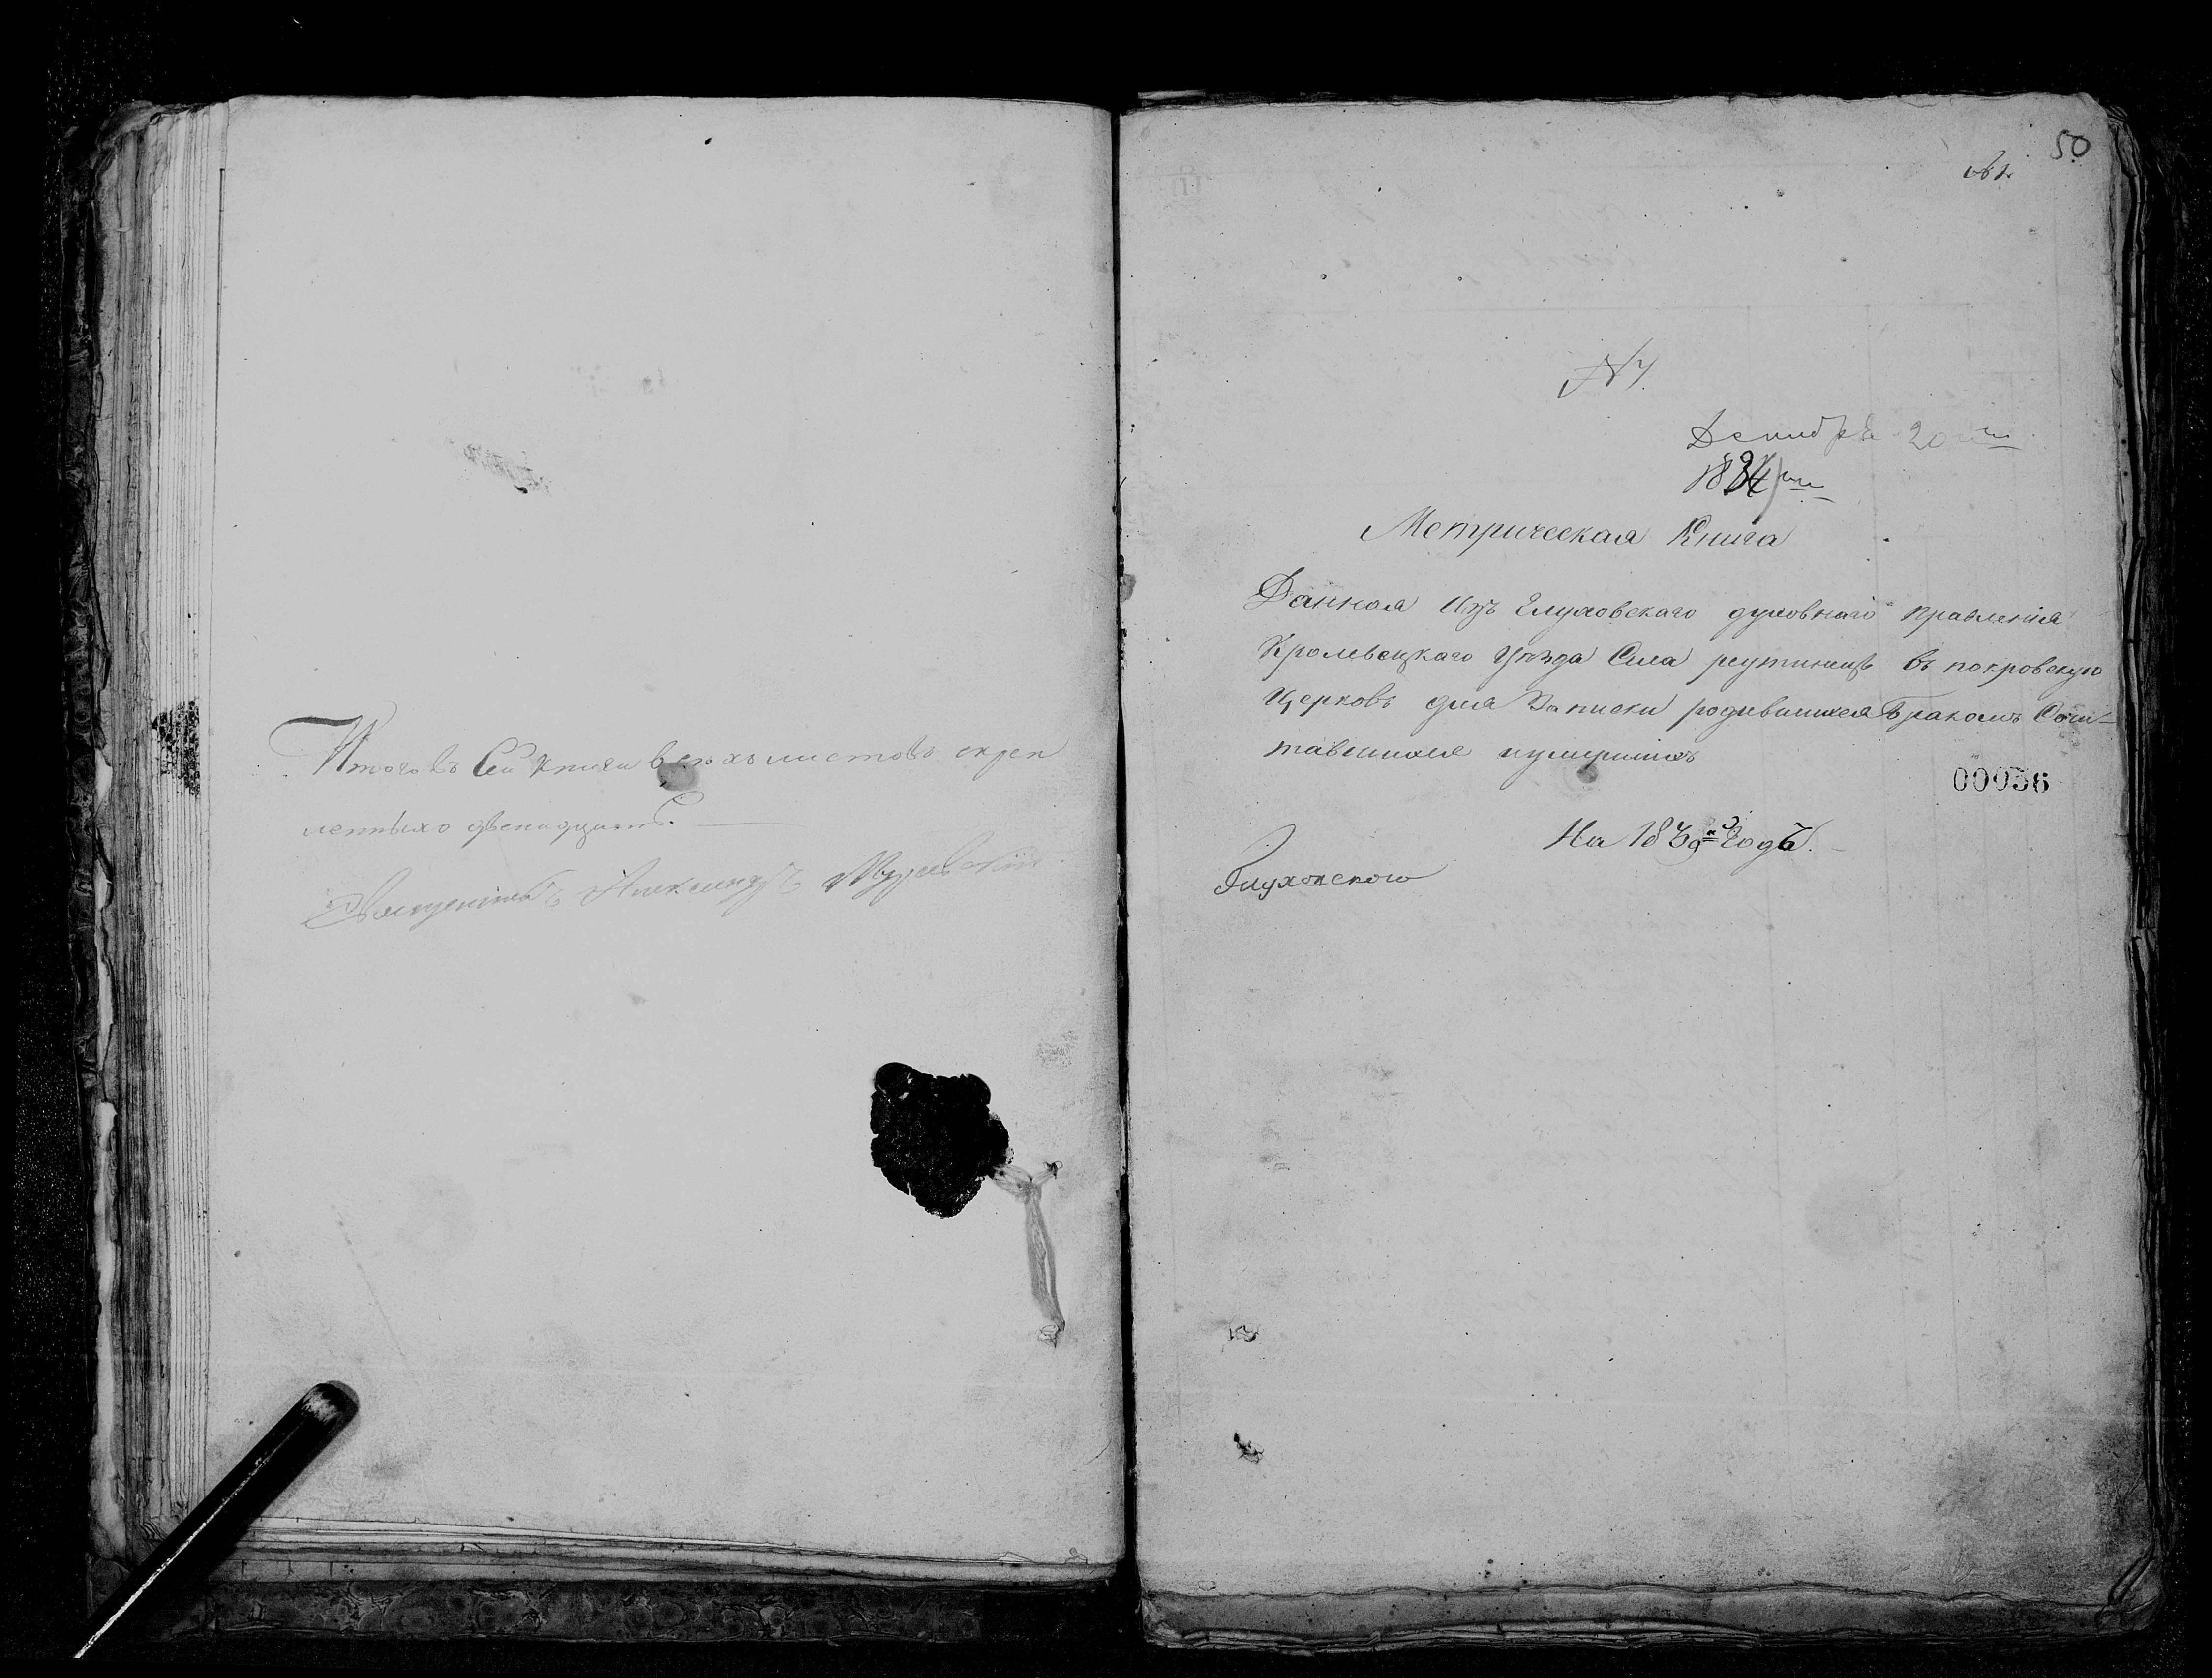 Итого въ Сей Книги всехъ листовъ скреп
ленныхъ двенадцать.
Александръ
50
№ 1.
№ 7.
Декабря 20
183
Метрическая Книга
Данная Изъ Глуховскаго духовнаго правленія
Кролевецкаго Уѣзда Села реутинецъ въ покровскую
Церковъ для Записки родившихся Бракомъ Сочи-
тавшихся иумершихъ
00036
На 183 Годъ.
Глуховского